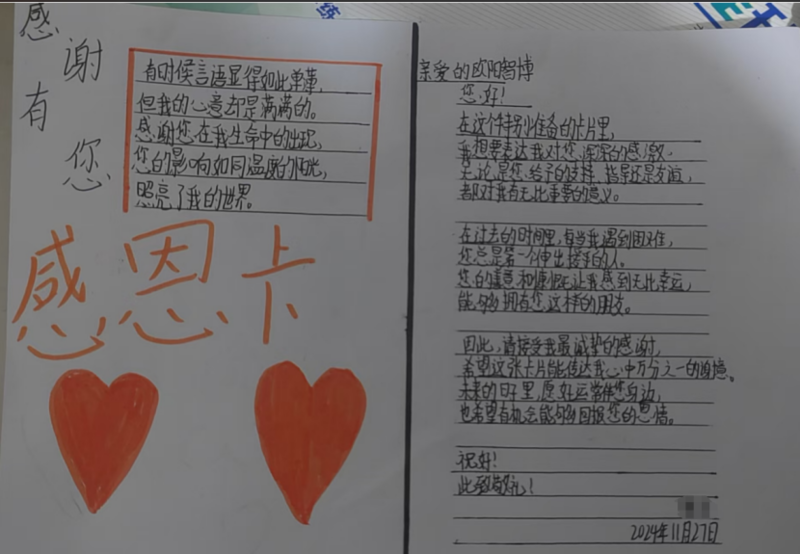 感谢有您
有时候言语显得如此单薄，
但我的心意却是满满的。
感谢您在我生命中的出现，
您的影响如同温度的阳光，
照亮了我的世界。
感恩卡
亲爱的欧阳智博
您好！
在这个特别准备的卡片里，
我想要表达我对您深深的感激。
无论是您给予的支持、指导还是友谊，
都对我有无比重要的意义。
在过去的时间里，每当我遇到困难，
您总是第一个伸出援手的人。
您的善意和慷慨让我感到无比幸运，
能够拥有您这样的朋友。
因此，请接受我最诚挚的感谢，
希望这张卡片能传达我心中万分之一的谢意。
未来的日子里，愿好运常伴您身边，
也希望有机会能够回报您的恩情。
祝好！
此致敬礼！
2024年11月27日